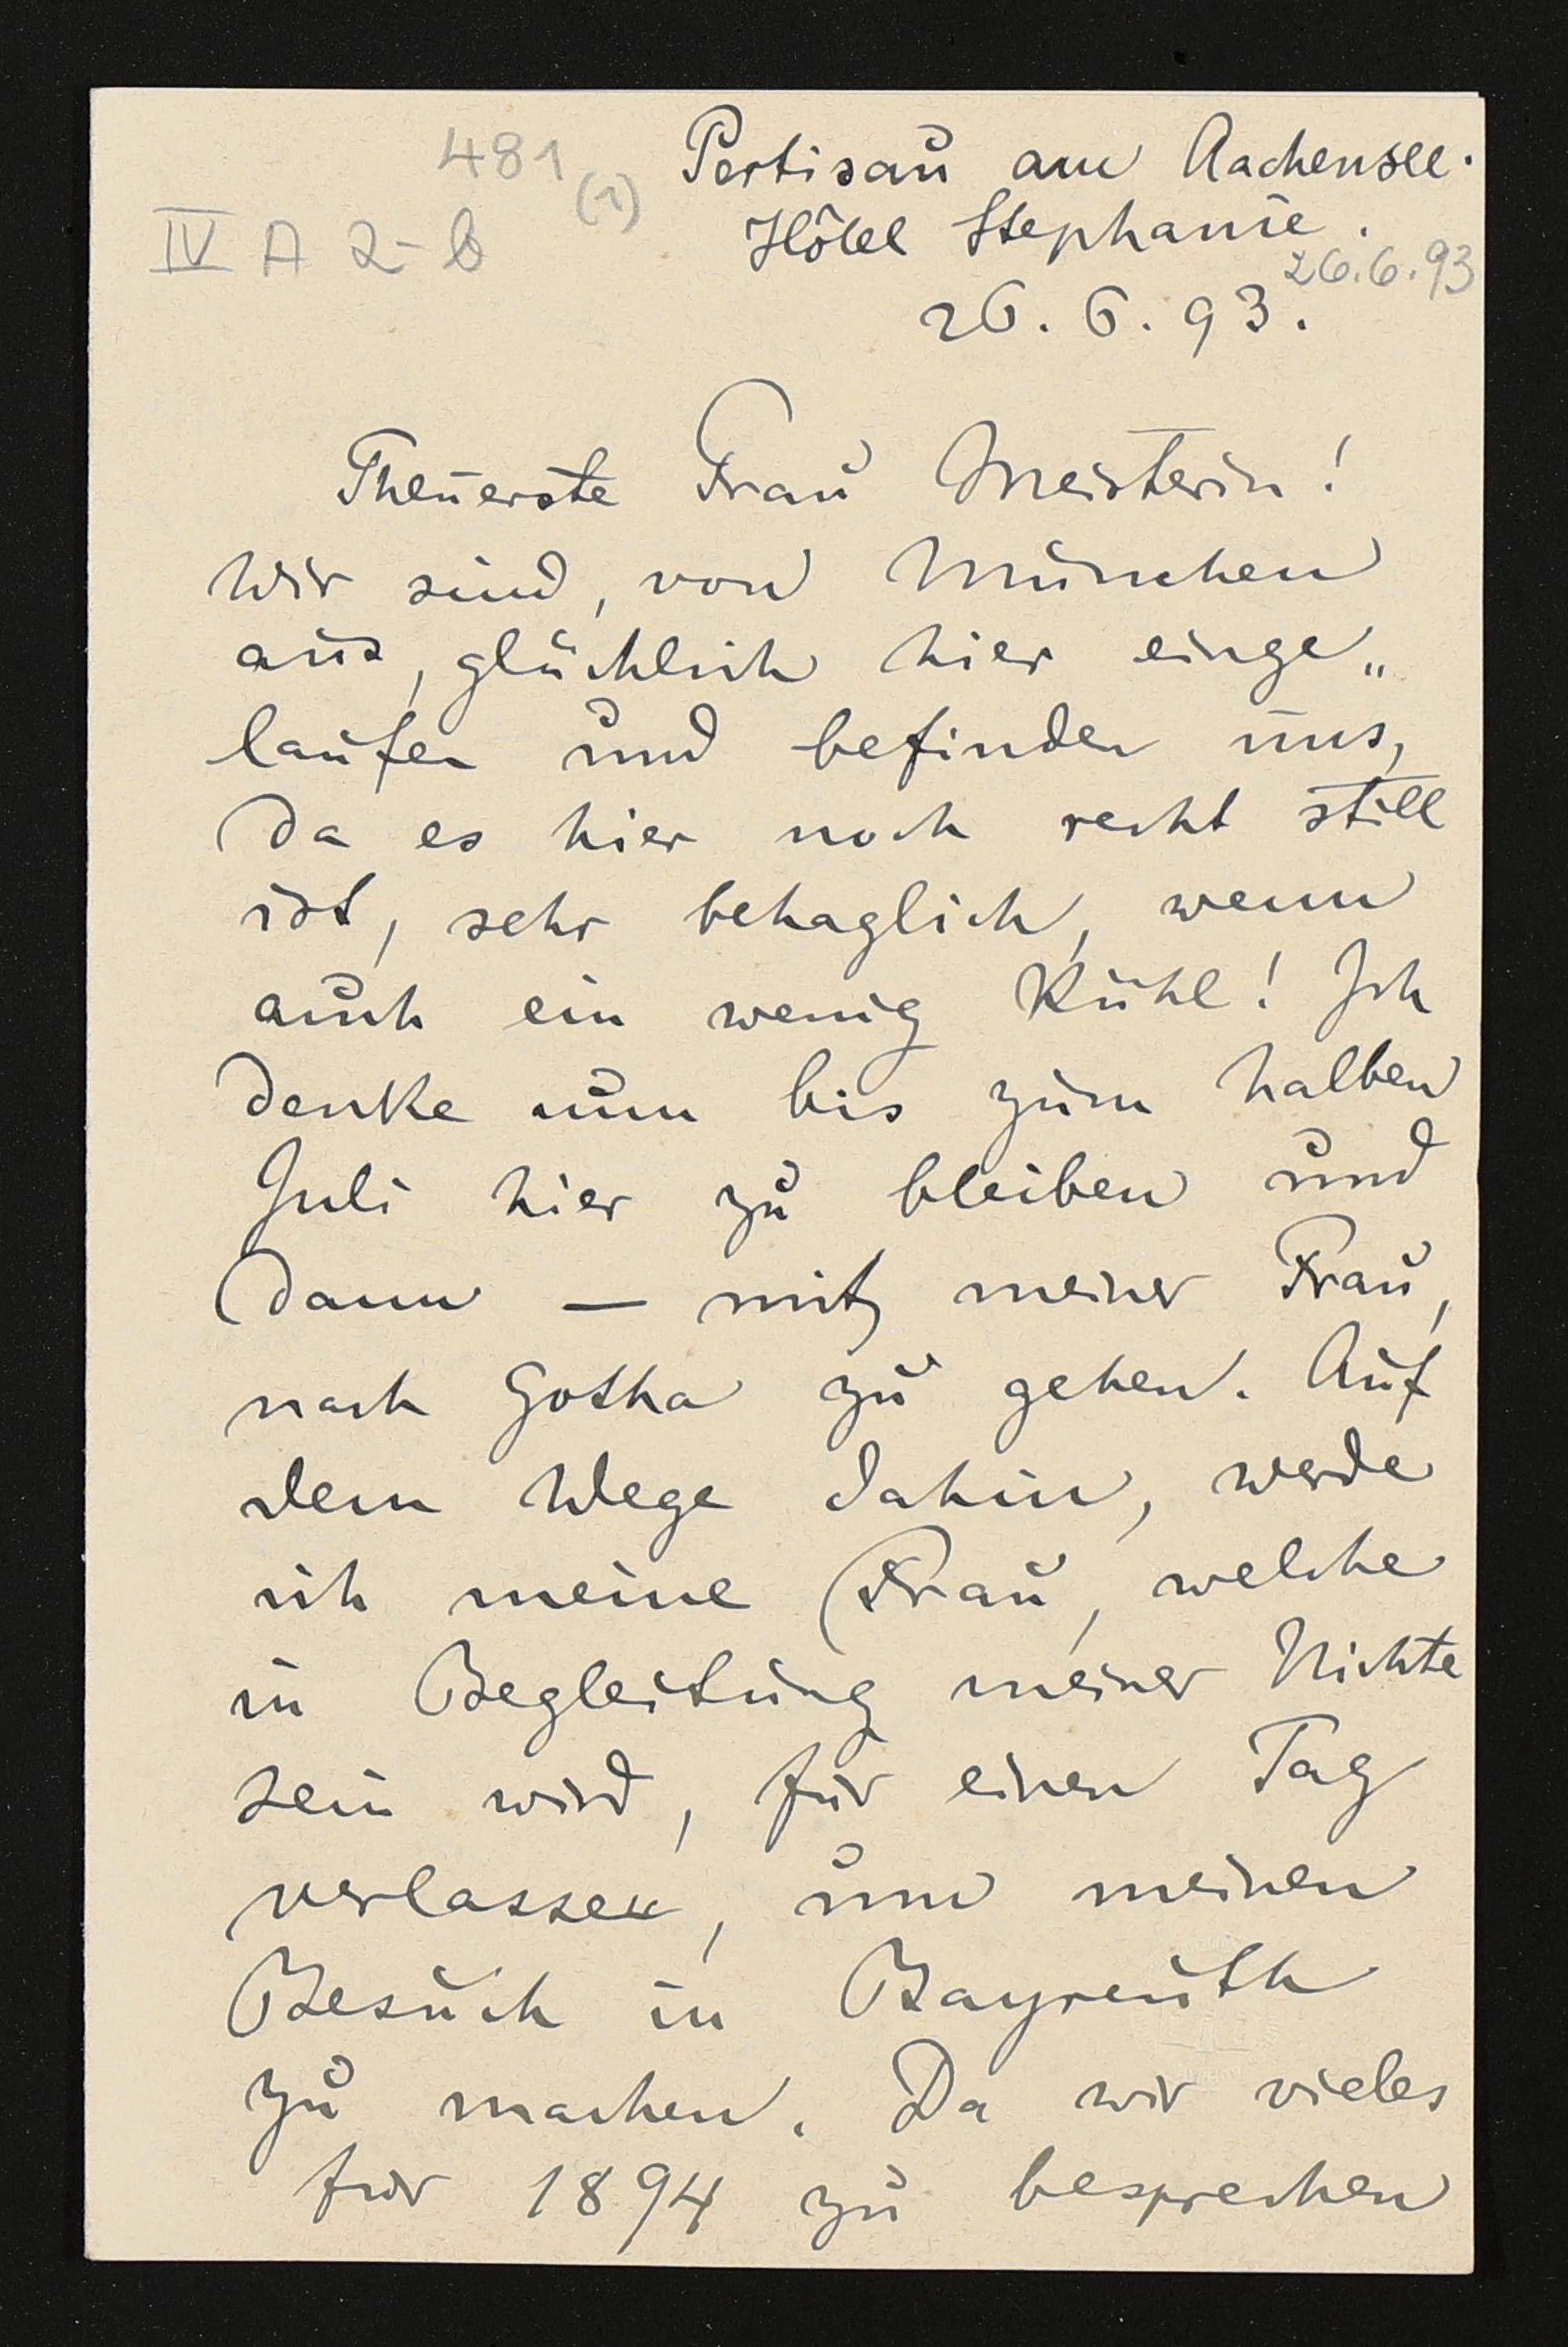 481 (1)
Pertisau am Aachensee.
IV A 2-b
Hôtel Stephanie.
26.6.93
26. 6. 93.
Theuerste Frau Meisterin!
Wir sind, von München
aus, glücklich hier einge„
laufen und befinden uns,
da es hier noch recht still
ist, sehr behaglich, wenn
auch ein wenig kühl! Ich
denke nun bis zum halben
Juli hier zu bleiben und
dann — mit meiner Frau,
nach Gotha zu gehen. Auf
dem Wege dahin, werde
ich meine Frau, welche
in Begleitung meiner Nichte
sein wird, für einen Tag
verlassen, um meinen
Besuch in Bayreuth
zu machen. Da wir vieles
für 1894 zu besprechen